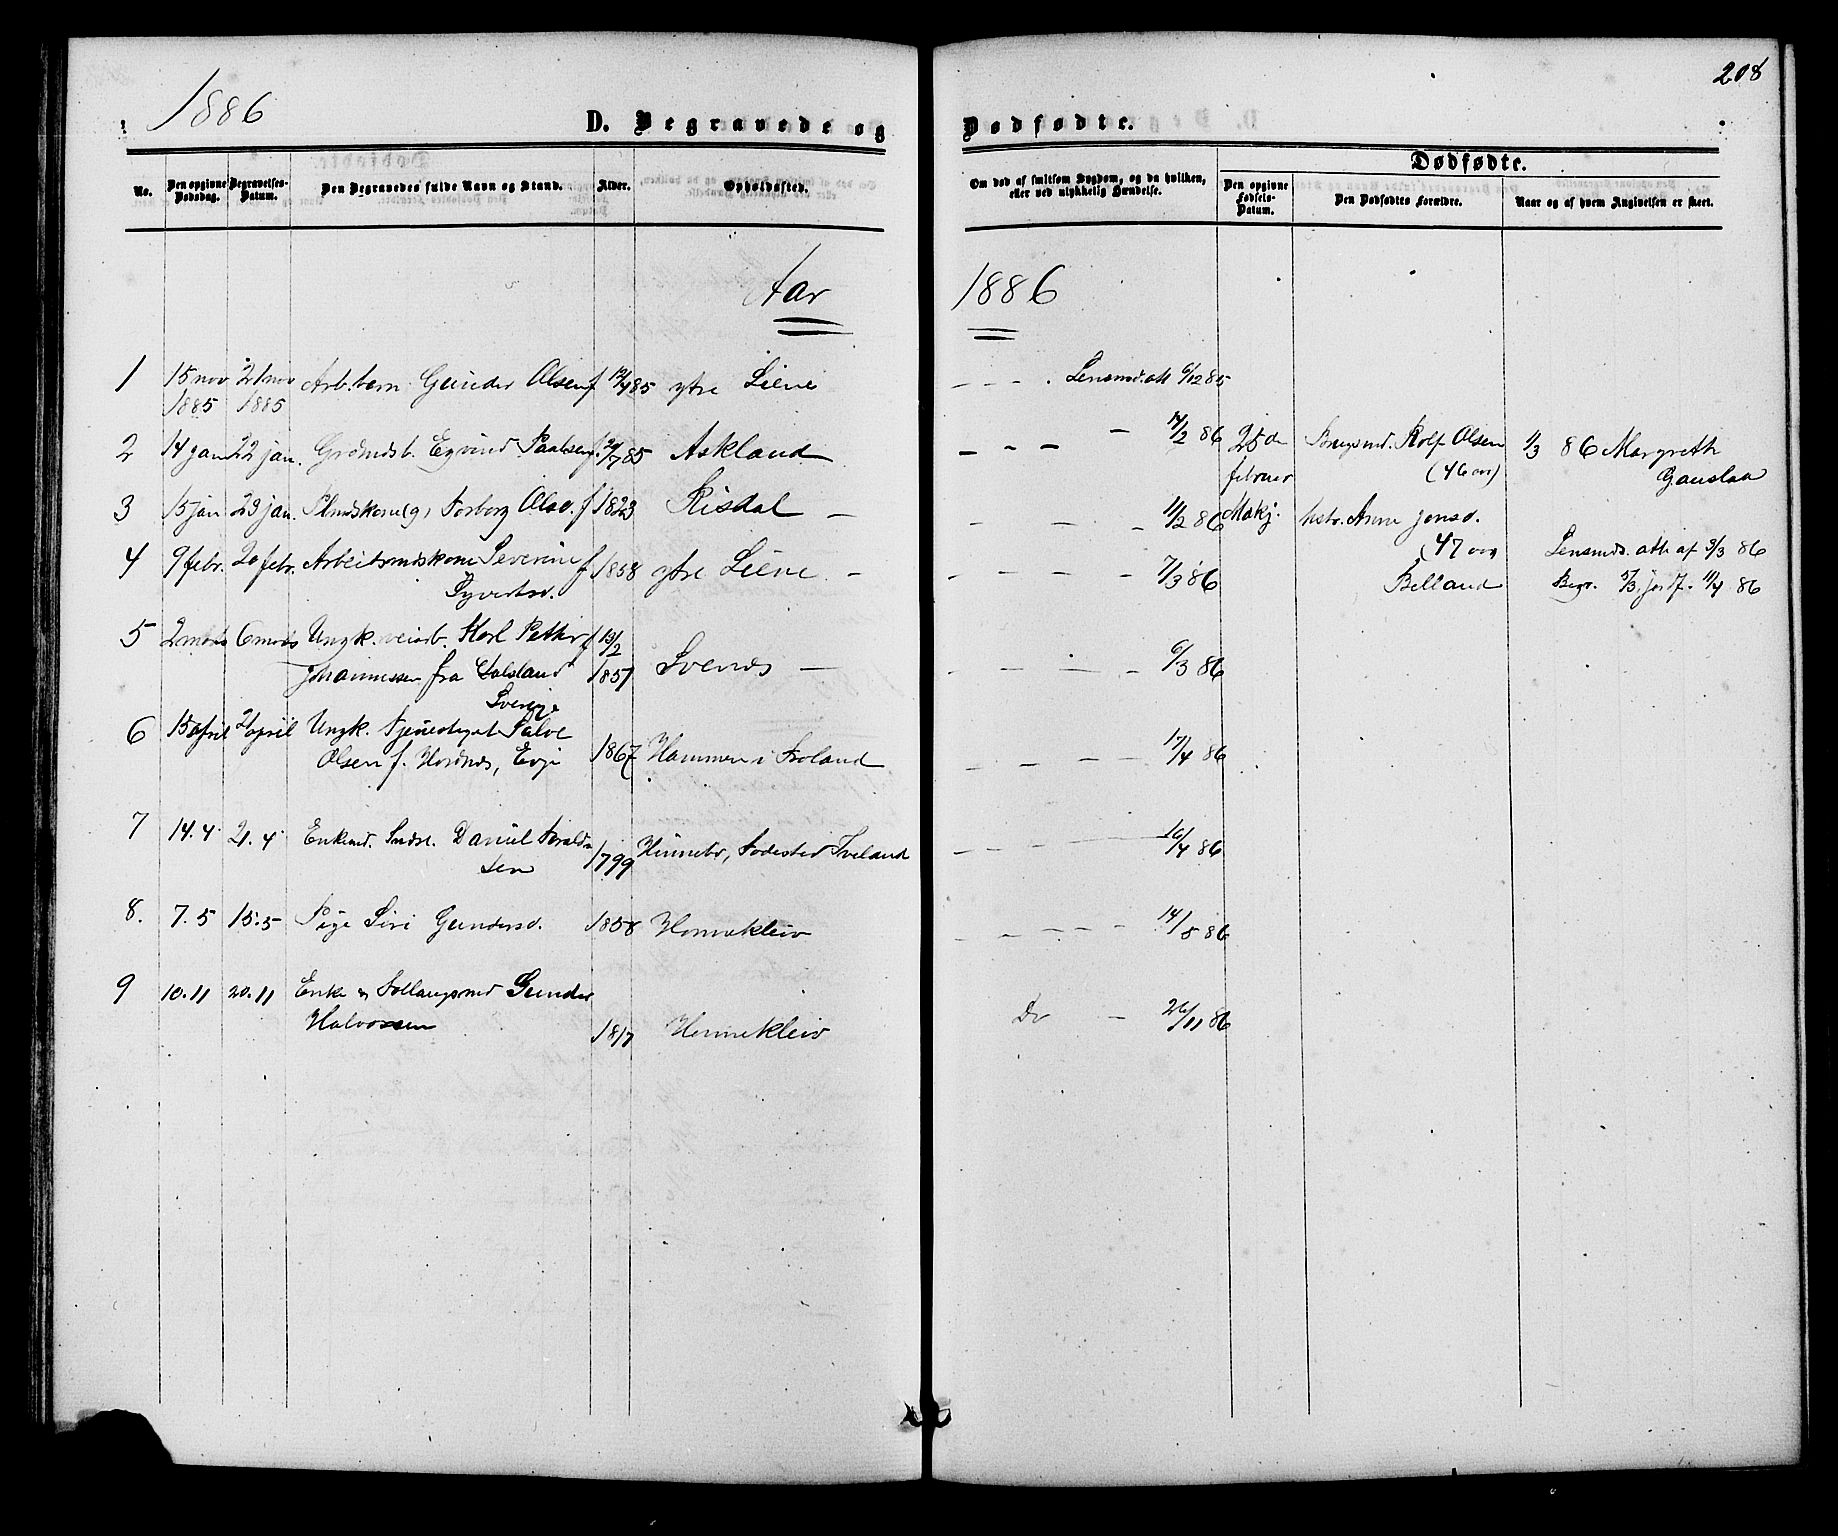 208
1886
D. Begravede og Dødfødte.
Dødfødte.
No.
Den opgivne Dødsdag.
Begravelses-Datum.
Den Begravedes fulde Navn og Stand.
Alder.
Opholdssted.
Om død af smitsom Sygdom, og da hvilken, eller ved ulykkelig Hændelse.
Den opgivne Fødsels-Datum.
Den Dødfødtes Forældre.
Naar og af hvem Angivelsen er skeet.
Aar 1886
1 15 nov 21 nov Arb. barn Gunder Olsen f 12/4 85 ytre Liene — — — Lensmd. att 6/12 85
1885 1885
2 14 jan 22 jan. Grdmdsb. Eyvind Paalsen f. 85 Askland — — — 14/2 86
3 15 jan 23 jan. Torborg Olsd. f 1823 Risdal — — — — 11/2 86
4 9 febr. 20 febr. Arbeidsmdskone Severine f 1858 ytre Liene — — — — — 7/3 86
Syvertsd.
5 2 marts 6 marts Ungk. veiarb. Karl Petter f 19/2
Johannessen fra Halland 1857 Svenes — — — — — 6/3 86
Sverige
6 15 april 21 april Ungk. Tjenestegut Salve
Olsen f. Hordnes, Evje 1867 Hammer i Froland — — — — 17/4 86
7 14.4 21.4 Enkemd. Indst. Daniel Torald-
sen 1799 Hinnebo, Fødested Iveland — — — 16/4 86
8. 7.5 15.5 Pige Siri Gundersd. 1858 Honnekleiv — — — — — 14/5 86
9 10.11 20.11 Enke og Follaugsmd Gunder
Halvorsen 1817 Honnekleiv Do — 26/11 86
25de Brugsmd. Rolf Olsen 1/3 86 Margreth
februar (46 aar) Gauslaa
hstr. Anne Jonsd.
(47 aar) Lensmds. att af 3/3 86
Belland Begr. 5/3. jordf. 11/4 86